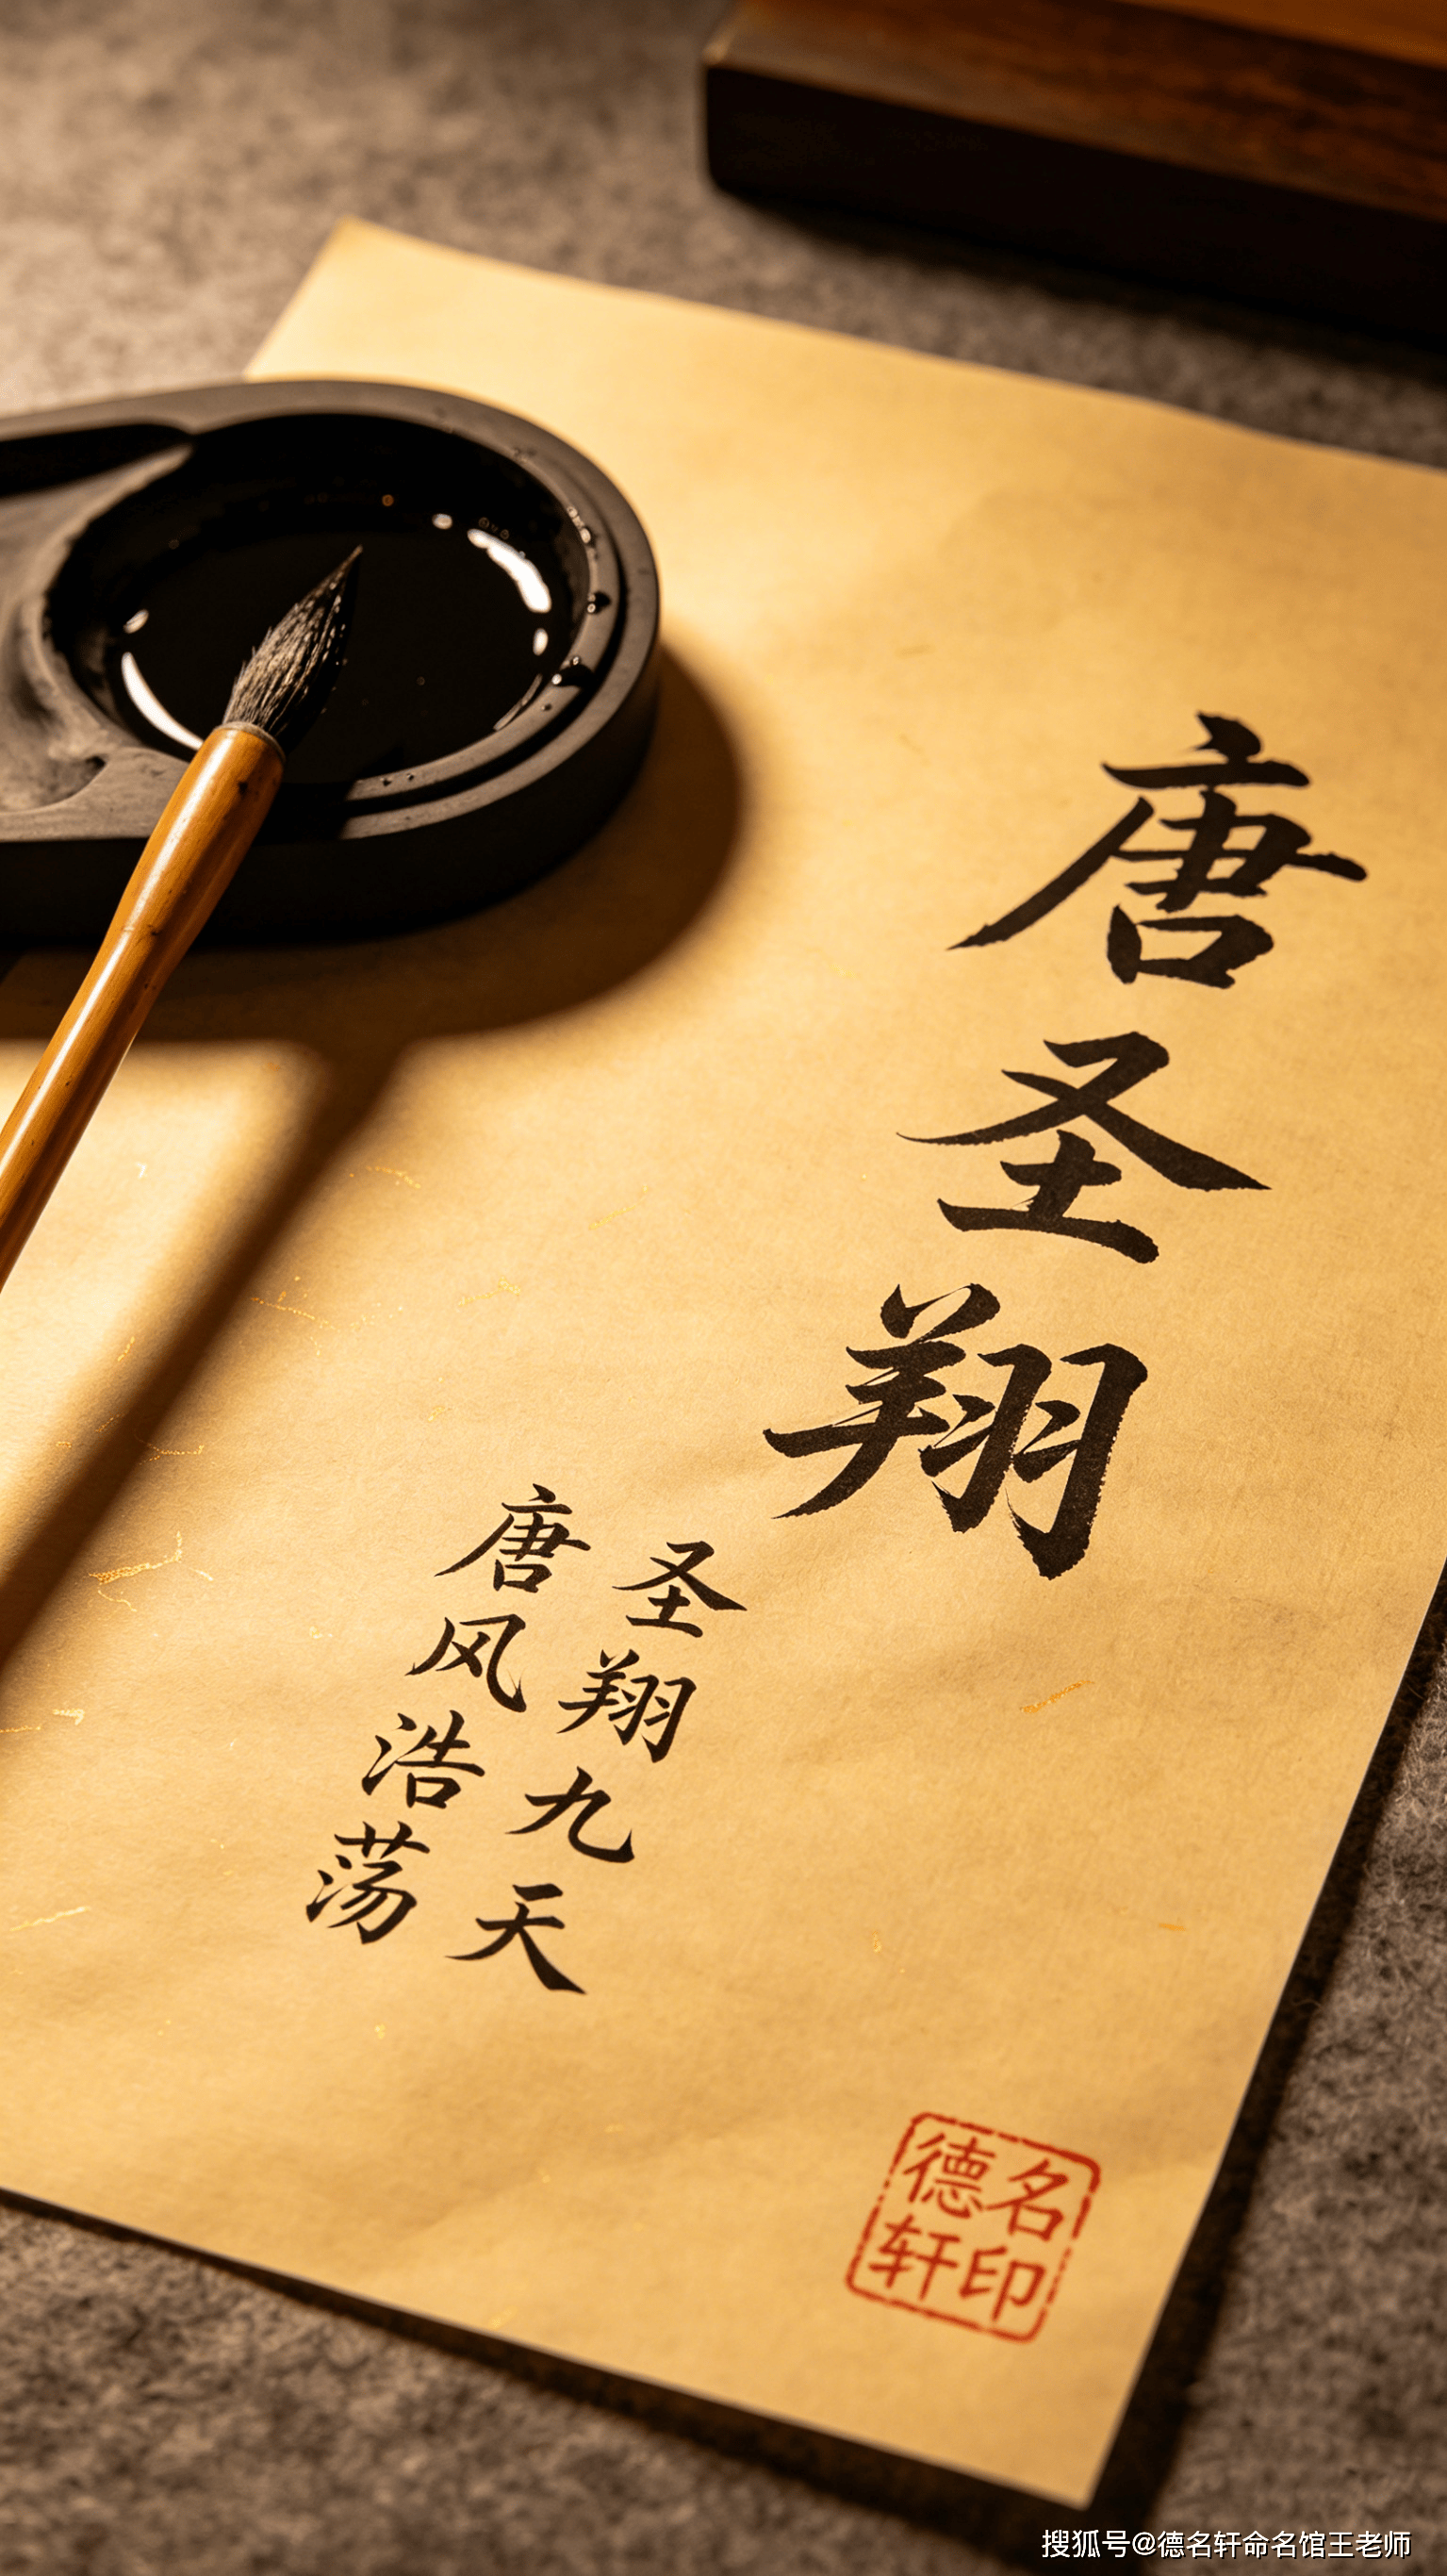 唐圣翔
圣翔九天
唐风浩荡
德名
轩印
搜狐号@德名轩命名馆王老师